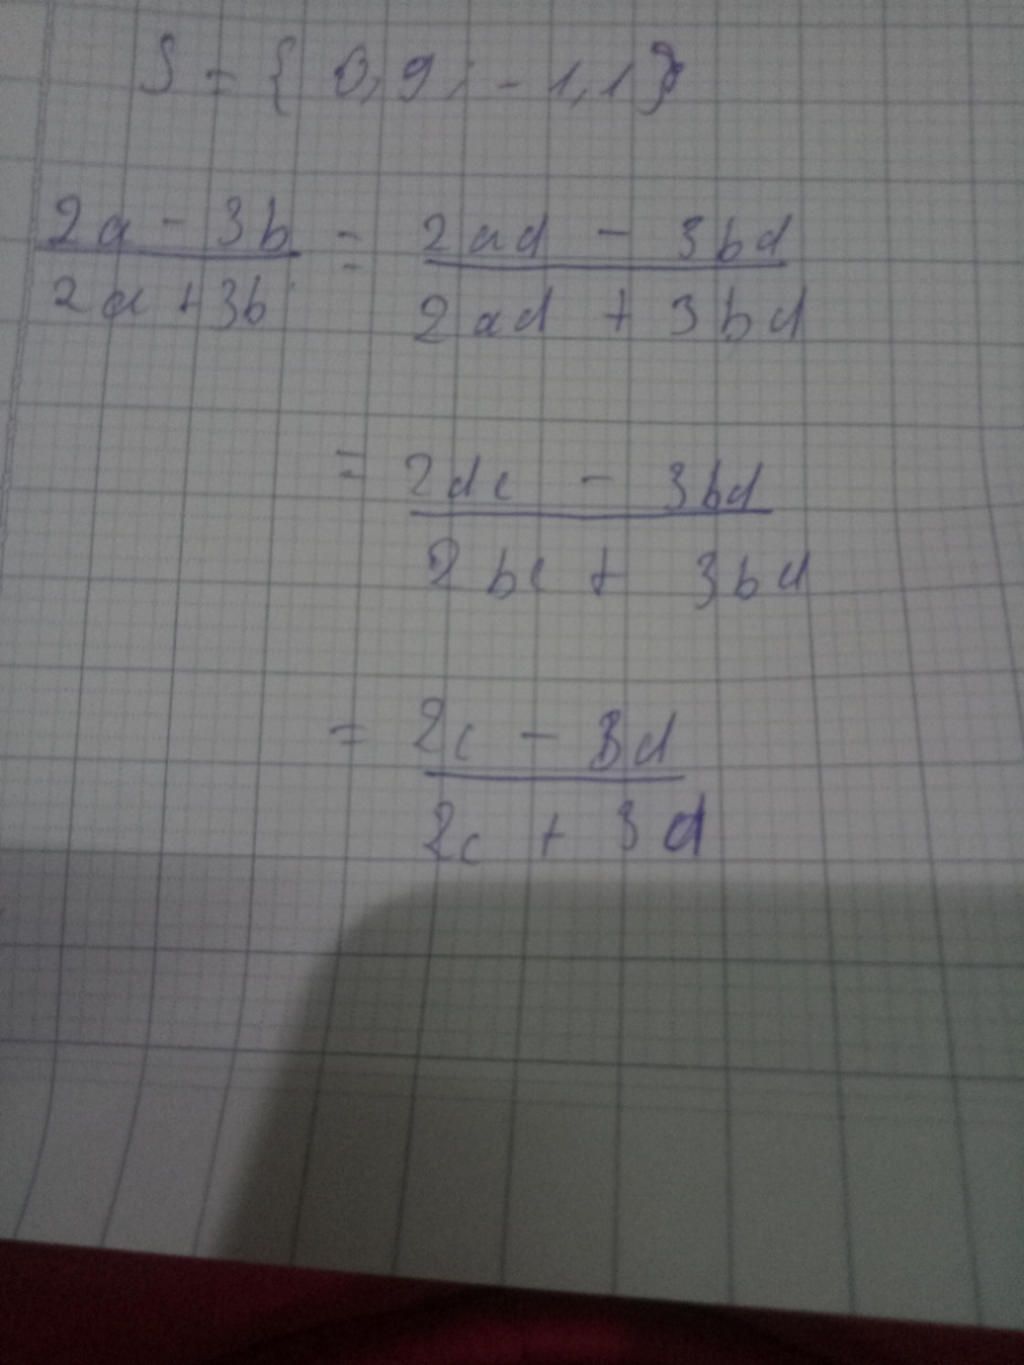 S = { 0,9 ; - 1,1 }
2a - 3b = 2ad - 3bd
2a + 3b 2ad + 3bd
= 2dc - 3bd
2bc + 3bd
= 2c - 3d
2c + 3d